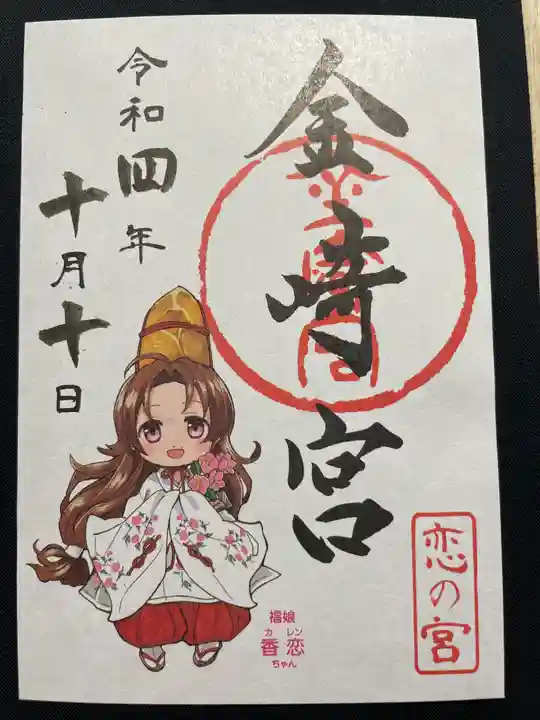 金崎宮
恋の宮
令和四年
十月十日
福娘
カレン
香恋
ちゃん